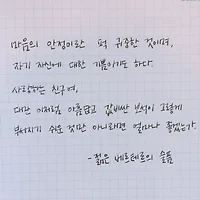 마음의 안정이란 퍽 귀중한 것이며,
자기 자신에 대한 기쁨이기도 하다.
사랑하는 친구여,
다만 이처럼 아름답고 값비싼 보석이 그렇게
부서지기 쉬운 것만 아니라면 얼마나 좋겠는가.
-젊은 베르테르의 슬픔